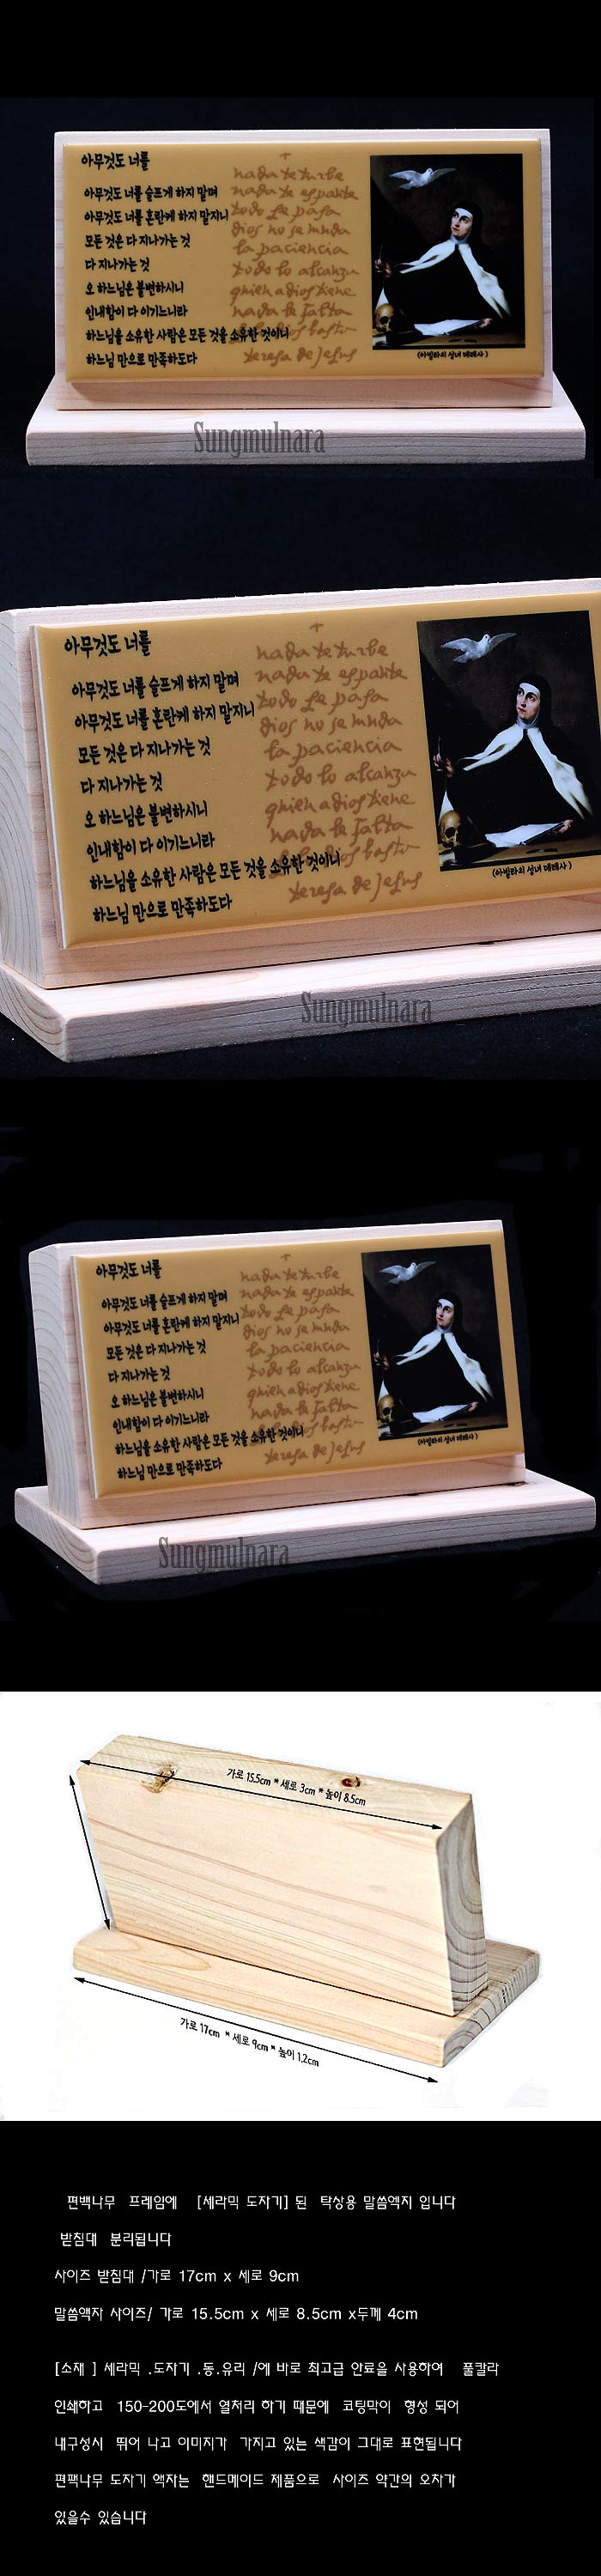 아무것도 너를
아무것도 너를 슬프게 하지 말며
아무것도 너를 혼란케 하지 말지니
모든 것은 다 지나가는 것
다 지나가는 것
오 하느님은 불변하시니
인내함이 다 이기느니라
하느님을 소유한 사람은 모든 것을 소유한 것이니
하느님 만으로 만족하도다
nada te turbe
nada te espante
todo se pasa
dios no se muda
la paciencia
todo lo alcanza
quien a dios tiene
nada le falta
teresa de Jesus
(아빌라의 성녀 데레사)
Sungmulnara
아무것도 너를
아무것도 너를 슬프게 하지 말며
아무것도 너를 혼란케 하지 말지니
모든 것은 다 지나가는 것
다 지나가는 것
오 하느님은 불변하시니
인내함이 다 이기느니라
하느님을 소유한 사람은 모든 것을 소유한 것이니
하느님 만으로 만족하도다
nada te turbe
nada te espante
todo se pasa
dios no se muda
la paciencia
todo lo alcanza
quien a dios tiene
nada le falta
teresa de Jesus
(아빌라의 성녀 데레사)
Sungmulnara
아무것도 너를
아무것도 너를 슬프게 하지 말며
아무것도 너를 혼란케 하지 말지니
모든 것은 다 지나가는 것
다 지나가는 것
오 하느님은 불변하시니
인내함이 다 이기느니라
하느님을 소유한 사람은 모든 것을 소유한 것이니
하느님 만으로 만족하도다
nada te turbe
nada te espante
todo se pasa
dios no se muda
la paciencia
todo lo alcanza
quien a dios tiene
nada le falta
teresa de Jesus
(아빌라의 성녀 데레사)
Sungmulnara
가로 15.5cm * 세로 3cm * 높이 8.5cm
가로 17cm * 세로 9cm * 높이 1.2cm
편백나무 프레임에 [세라믹 도자기] 된 탁상용 말씀액자 입니다
받침대 분리됩니다
사이즈 받침대 /가로 17cm x 세로 9cm
말씀액자 사이즈/ 가로 15.5cm x 세로 8.5cm x두께 4cm
[소재 ] 세라믹 .도자기 .동.유리 /에 바로 최고급 안료을 사용하여 풀칼라
인쇄하고 150-200도에서 열처리 하기 때문에 코팅막이 형성 되어
내구성시 뛰어 나고 이미지가 가지고 있는 색감이 그대로 표현됩니다
편팩나무 도자기 액자는 핸드메이드 제품으로 사이즈 약간의 오차가
있을수 있습니다